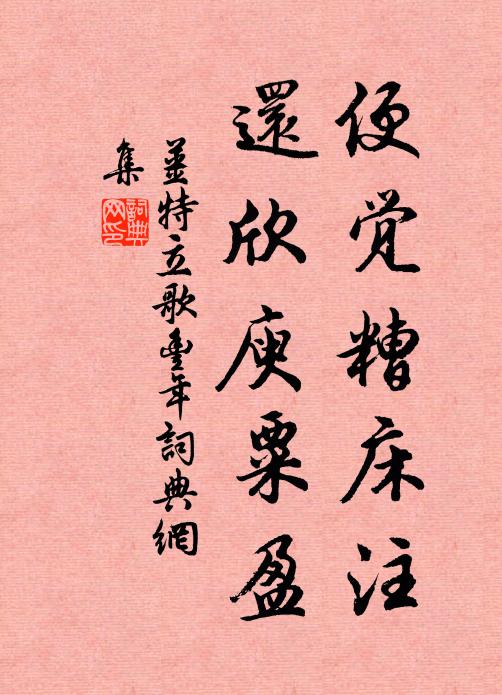 便覺糟床注
還欣庾粟盈
姜特立歌豐年詞典網
集
詞典網印